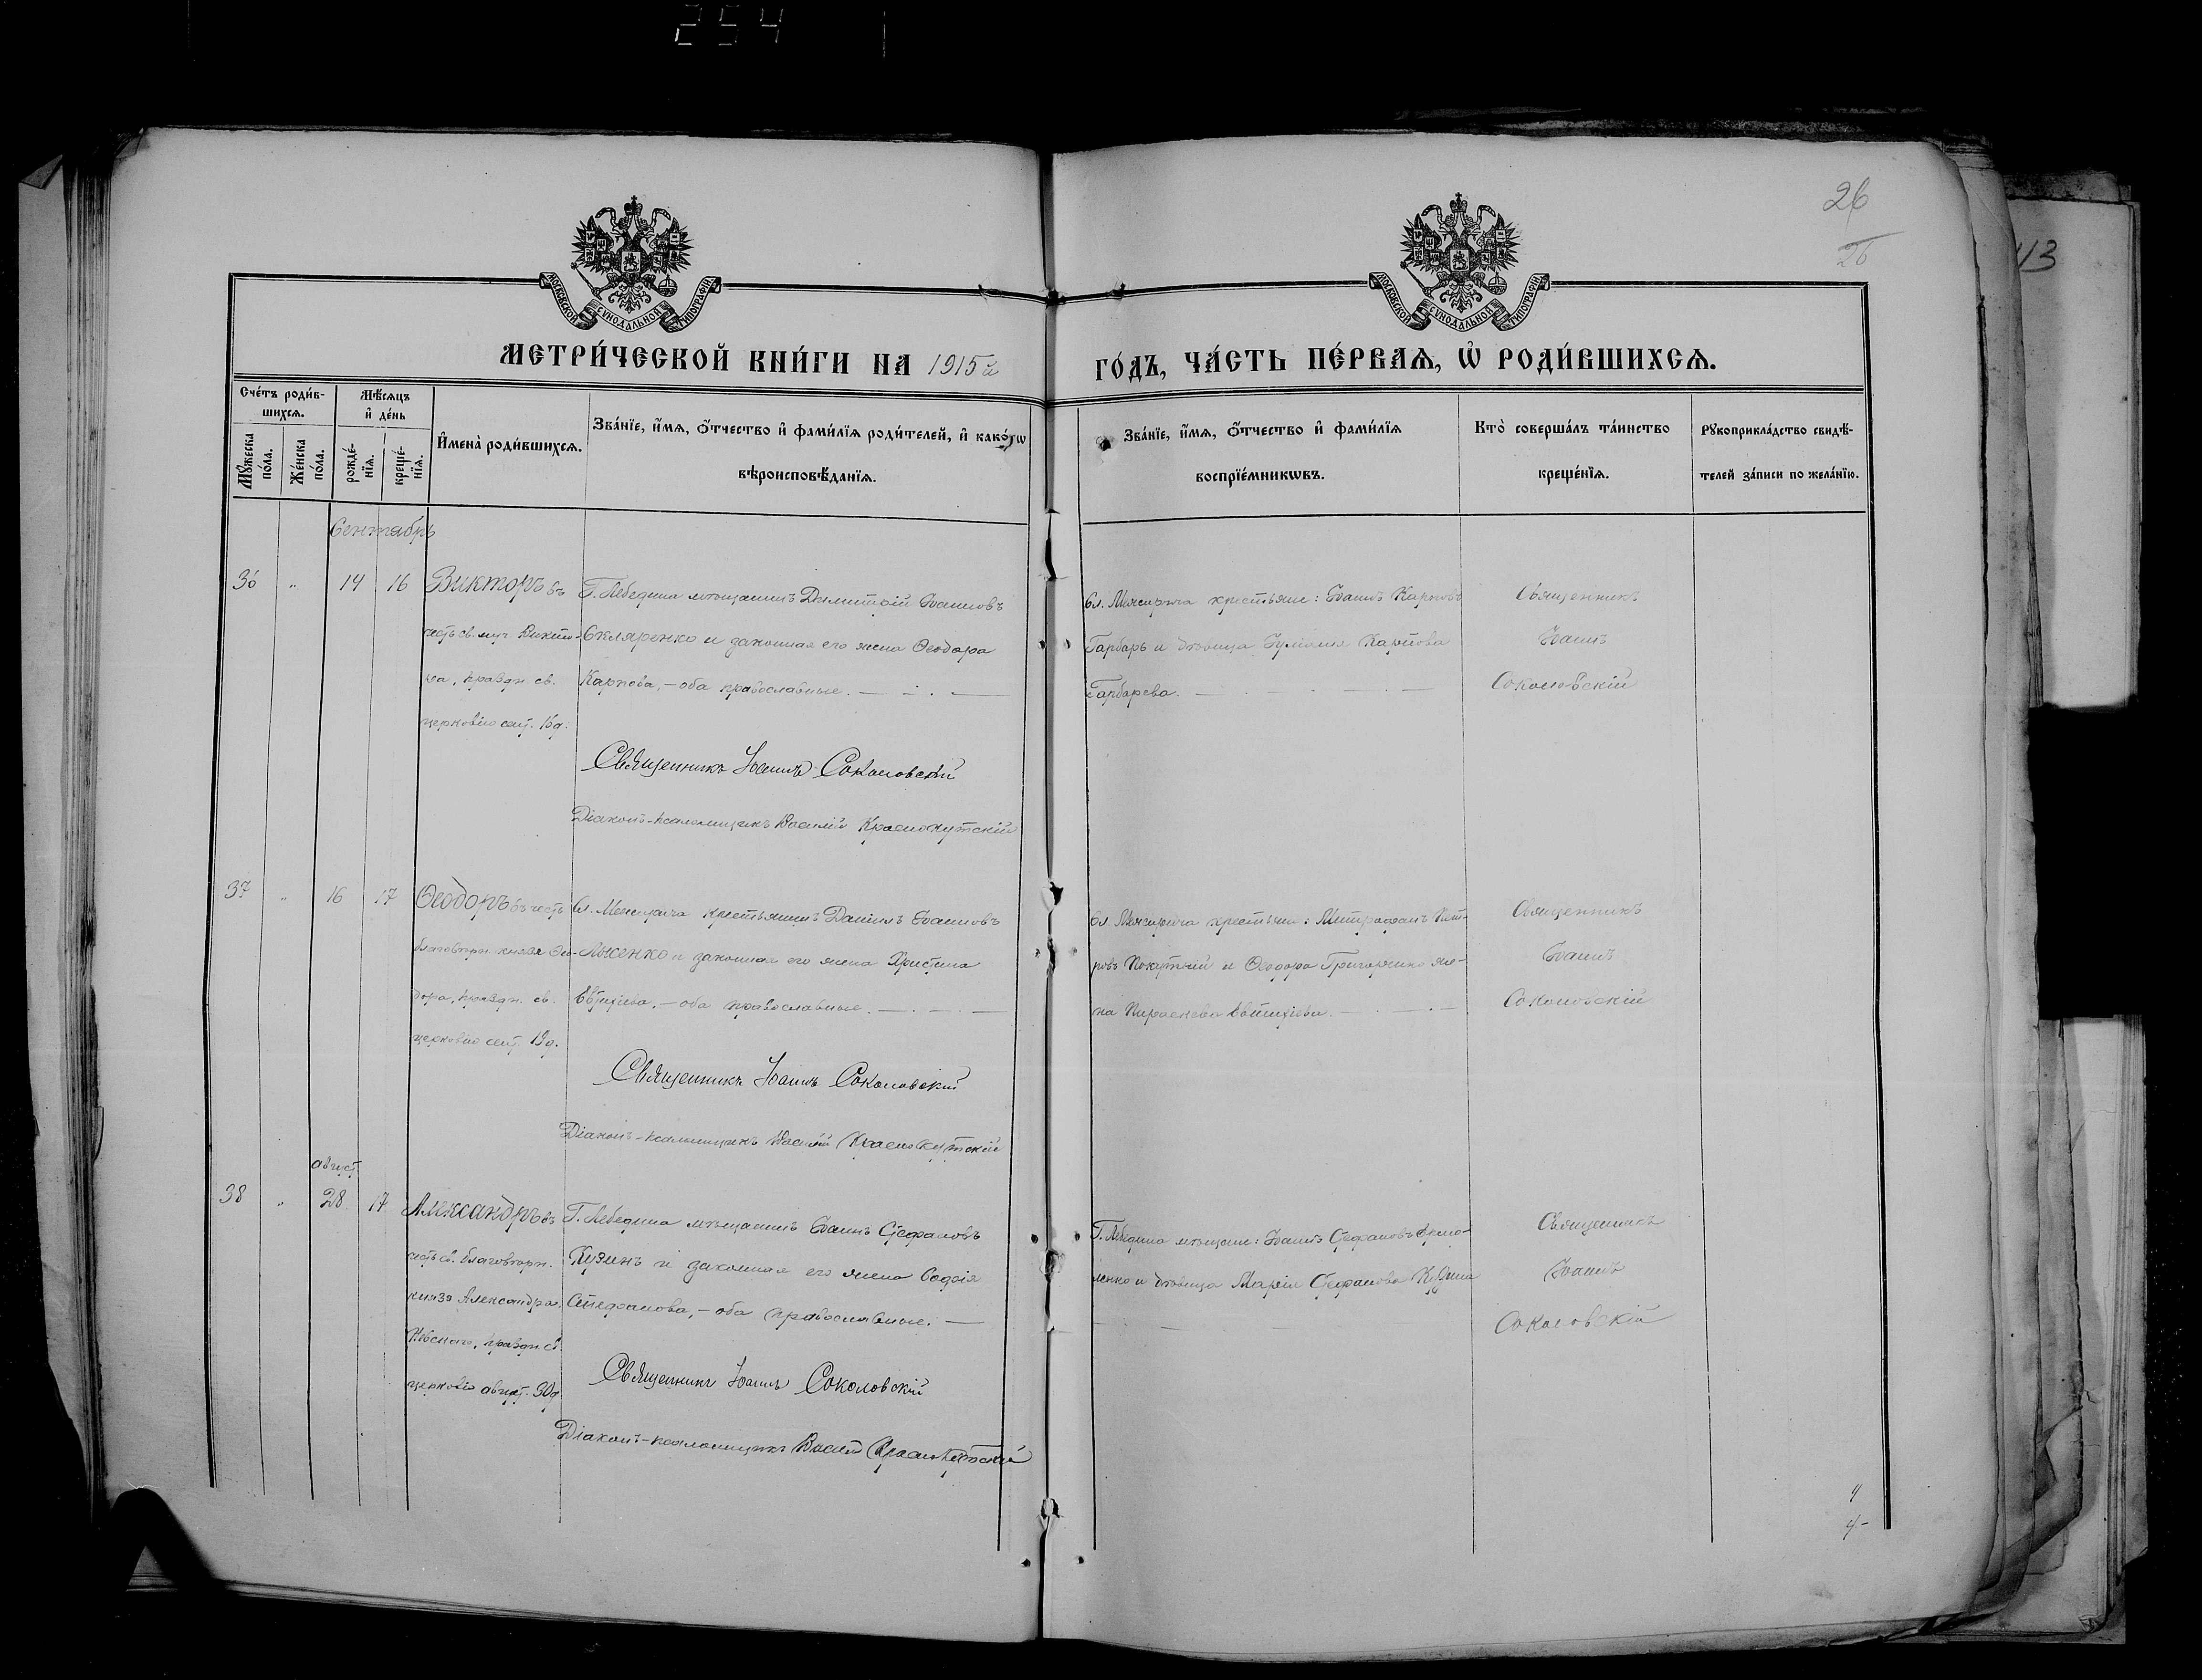 254
26
26
13
МОСКОВСКОЙ СѴНОДАЛЬНОЙ ТИПОГРАФІИ
МОСКОВСКОЙ СѴНОДАЛЬНОЙ ТИПОГРАФІИ
МЕТРИ́ЧЕСКОЙ КНИ́ГИ НА 1915 г.
ГО́ДЪ, ЧА́СТЬ ПЕ́РВАѦ, Ѡ҆ РОДИ́ВШИХСѦ.
Сче́тъ роди́в-
шихсѧ.
Мꙋ́жеска
по́ла.
Же́нска
по́ла.
Мѣ́сѧцъ
и҆ де́нь
рожде́-
нїѧ.
креще́-
нїѧ.
И҆мена̀ роди́вшихсѧ.
Зва́нїе, и҆́мѧ, ѻ҆́тчество и҆ фами́лїѧ роди́телей, и҆ како́гѡ
вѣроисповѣ́данїѧ.
Зва́нїе, и҆́мѧ, ѻ҆́тчество и҆ фами́лїѧ
воспрїе́мникѡвъ.
Кто̀ соверша́лъ та́инство
креще́нїѧ.
Рꙋкоприкла́дство свидѣ́-
телей за́писи по жела́нїю.
Сентябрь
36 " 14 16
Викторъ въ
честь св. муч. Викто-
ра, праздн. св.
церковію сент. 16 д.
Г. Лебедина мѣщанинъ Димитрій Іоанновъ
Скляренко и законная его жена Ѳеодора
Карпова, – оба православные.
Священникъ Іоаннъ Соколовскій
Діаконъ-псаломщикъ Василій Краснокутскій
Сл. Межирича крестьяне: Іоаннъ Карповъ
Гарбарь и дѣвица Іуліанія Карпова
Гарбарева.
Священникъ
Іоаннъ
Соколовскій
37 " 16 17
Ѳеодоръ въ честь
благовѣрн. князя Ѳео-
дора, праздн. св.
церковію сент. 19 д.
Сл. Межирича крестьянинъ Даніилъ Іоанновъ
Лысенко и законная его жена Христина
Евтихіева, – оба православные.
Священникъ Іоаннъ Соколовскій
Діаконъ-псаломщикъ Василій Краснокутскій
Сл. Межирича крестьяне: Митрофанъ Пет-
ровъ и Ѳеодора Григоренко же-
на Евтихіева.
Священникъ
Іоаннъ
Соколовскій
август.
38 " 28 17
Александръ въ
честь св. благовѣрн.
князя Александра
Невскаго, праздн. св.
церковію август. 30 д.
Г. Лебедина мѣщанинъ Іоаннъ Стефановъ
Кузинъ и законная его жена Софія
Стефанова, – оба православные.
Священникъ Іоаннъ Соколовскій
Діаконъ-псаломщикъ Василій Краснокутскій
Г. Лебедина мѣщане: Іоаннъ Стефановъ Ярмо-
ленко и дѣвица Марія Стефанова Кузина
Священникъ
Іоаннъ
Соколовскій